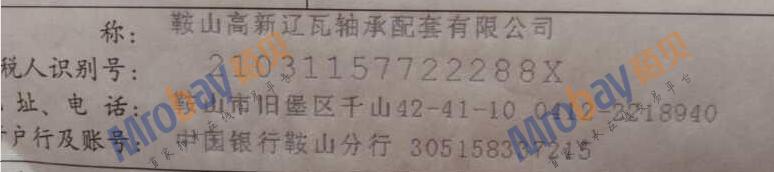 称: 鞍山高新辽瓦轴承配套有限公司
税人识别号: 21031157722288X
址、电话: 鞍山市旧堡区千山42-41-10 0412-2218940
户行及账号: 中国银行鞍山分行 305158337215
Mrobay陌贝
Mrobay陌贝